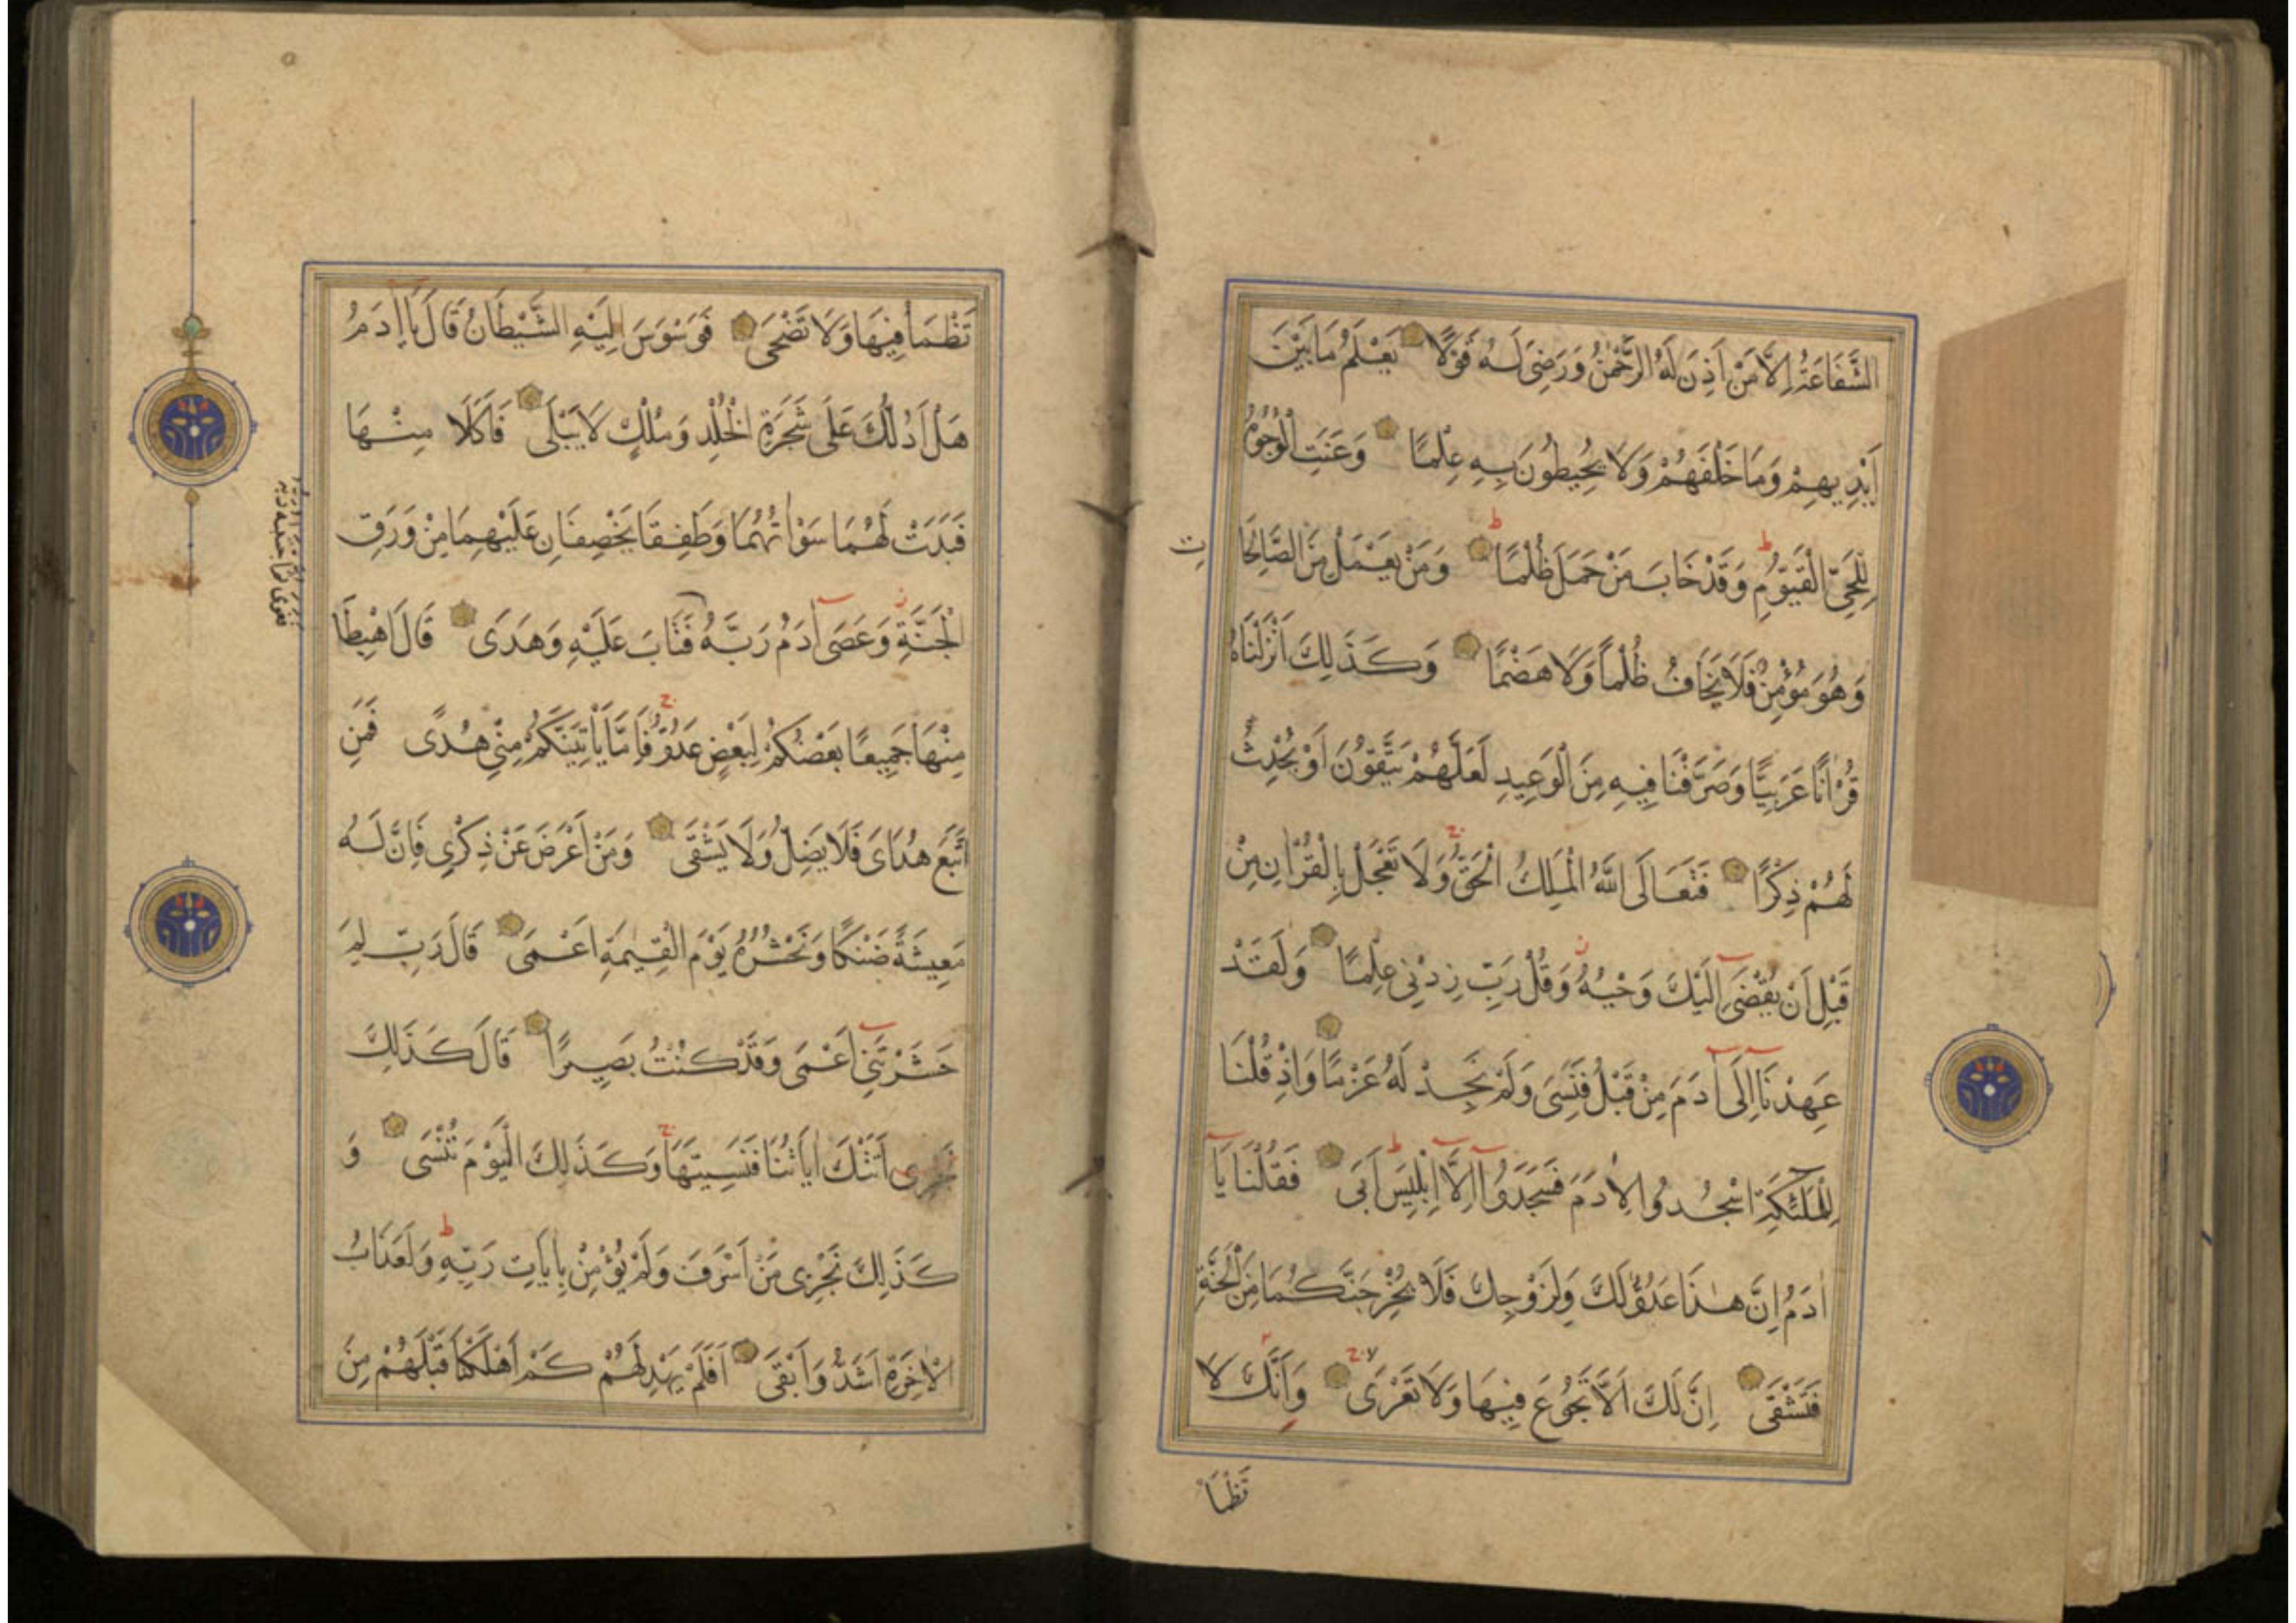 الشَّفَاعَةُ اِلَّا مَنْ اَذِنَ لَهُ الرَّحْمٰنُ وَرَضِىَ لَهُ قَوْلًا يَعْلَمُ مَا بَيْنَ
اَيْدِيهِمْ وَمَا خَلْفَهُمْ وَلَا يُحِيطُونَ بِهِ عِلْمًا وَعَنَتِ الْوُجُوهُ
لِلْحَىِّ الْقَيُّومِ وَقَدْ خَابَ مَنْ حَمَلَ ظُلْمًا وَمَنْ يَعْمَلْ مِنَ الصَّالِحَا
تِ
وَهُوَ مُؤْمِنٌ فَلَا يَخَافُ ظُلْمًا وَلَا هَضْمًا وَكَذَلِكَ اَنْزَلْنَاهُ
قُرْاٰنًا عَرَبِيًّا وَصَرَّفْنَا فِيهِ مِنَ الْوَعِيدِ لَعَلَّهُمْ يَتَّقُونَ اَوْ يُحْدِثُ
لَهُمْ ذِكْرًا فَتَعَالَى اللّٰهُ الْمَلِكُ الْحَقُّ وَلَا تَعْجَلْ بِالْقُرْاٰنِ مِنْ
قَبْلِ اَنْ يُقْضَىٓ اِلَيْكَ وَحْيُهُ وَقُلْ رَبِّ زِدْنِى عِلْمًا وَلَقَدْ
عَهِدْنَآ اِلَىٓ آدَمَ مِنْ قَبْلُ فَنَسِىَ وَلَمْ نَجِدْ لَهُ عَزْمًا وَاِذْ قُلْنَا
لِلْمَلٰٓئِكَةِ اسْجُدُوا لِاٰدَمَ فَسَجَدُوٓا اِلَّآ اِبْلِيسَ اَبَى فَقُلْنَا يَآ
اٰدَمُ اِنَّ هٰذَا عَدُوٌّ لَكَ وَلِزَوْجِكَ فَلَا يُخْرِجَنَّكُمَا مِنَ الْجَنَّةِ
فَتَشْقَى اِنَّ لَكَ اَلَّا تَجُوعَ فِيهَا وَلَا تَعْرَى وَاَنَّكَ لَا
تَظْمَأُ
تَظْمَأُ فِيهَا وَلَا تَضْحَى فَوَسْوَسَ اِلَيْهِ الشَّيْطَانُ قَالَ يَآ اٰدَمُ
هَلْ اَدُلُّكَ عَلَى شَجَرَةِ الْخُلْدِ وَمُلْكٍ لَا يَبْلَى فَاَكَلَا مِنْهَا
فَبَدَتْ لَهُمَا سَوْاٰتُهُمَا وَطَفِقَا يَخْصِفَانِ عَلَيْهِمَا مِنْ وَرَقِ
الْجَنَّةِ وَعَصَىٓ آدَمُ رَبَّهُ فَتَابَ عَلَيْهِ وَهَدَى قَالَ اهْبِطَا
فغوى ثم اجتبيه ربه
مِنْهَا جَمِيعًا بَعْضُكُمْ لِبَعْضٍ عَدُوٌّ فَاِمَّا يَأْتِيَنَّكُمْ مِنِّى هُدًى فَمَنِ
اتَّبَعَ هُدَاىَ فَلَا يَضِلُّ وَلَا يَشْقَى وَمَنْ اَعْرَضَ عَنْ ذِكْرِى فَاِنَّ لَهُ
مَعِيشَةً ضَنْكًا وَنَحْشُرُهُ يَوْمَ الْقِيٰمَةِ اَعْمَى قَالَ رَبِّ لِمَ
حَشَرْتَنِىٓ اَعْمَى وَقَدْ كُنْتُ بَصِيرًا قَالَ كَذَلِكَ
نَجْزِى اَتَتْكَ اٰيَاتُنَا فَنَسِيتَهَا وَكَذَلِكَ الْيَوْمَ تُنْسَى وَ
كَذَلِكَ نَجْزِى مَنْ اَسْرَفَ وَلَمْ يُؤْمِنْ بِاٰيَاتِ رَبِّهِ وَلَعَذَابُ
الْاٰخِرَةِ اَشَدُّ وَاَبْقَى اَفَلَمْ يَهْدِ لَهُمْ كَمْ اَهْلَكْنَا قَبْلَهُمْ مِنَ